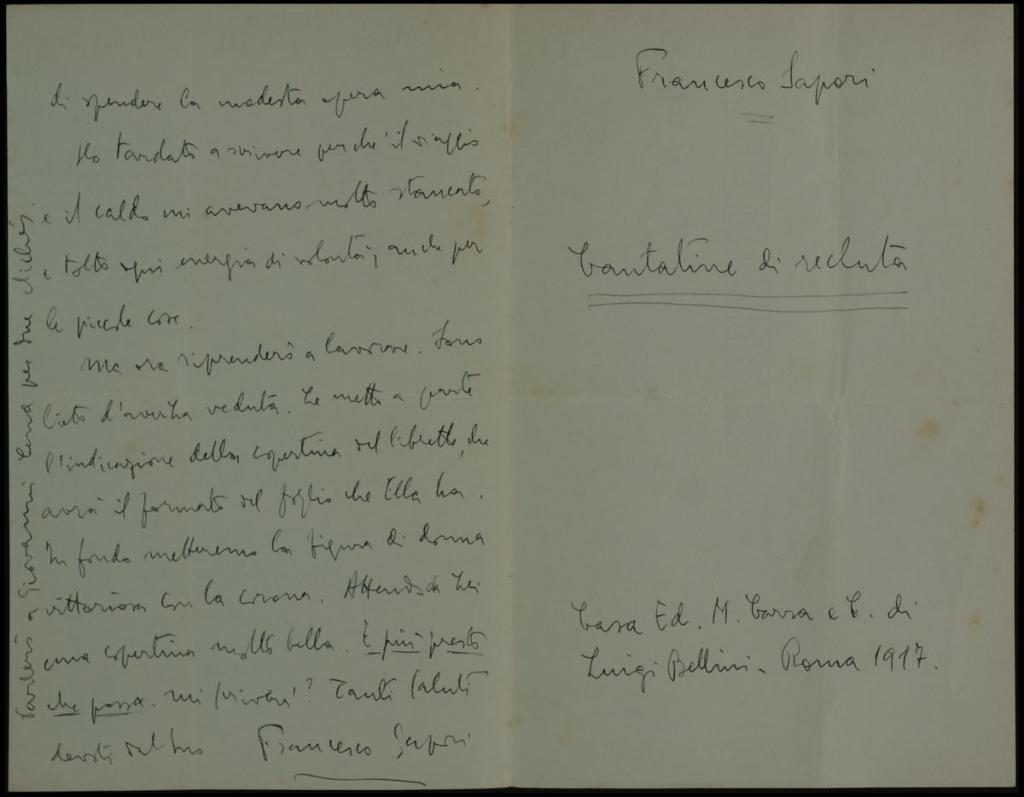 di spendere la modesta opera mia.
Ho tardato a scrivere perché il viaggio
e il caldo mi avevano molto stancato,
e tolto ogni energia di volontà; anche per
le piccole cose.
Ma ora riprenderò a lavorare. Sono
lieto d'averLa veduta. Le metto a parte
l'indicazione della copertina del libretto, che
avrà il formato del foglio che Ella ha.
In fondo metteremo la figura di donna
vittoriosa con la corona. Attendo da Lei
una copertina molto bella. È più presto
che possa. Mi scriverà? Tanti saluti
devoti dal suo Francesco Sapori
Parlerò a Giovanni Cena per due clichés.
Francesco Sapori
Cantatine di recluta
Casa Ed. M. Carra e C. di
Luigi Bellini - Roma 1917.